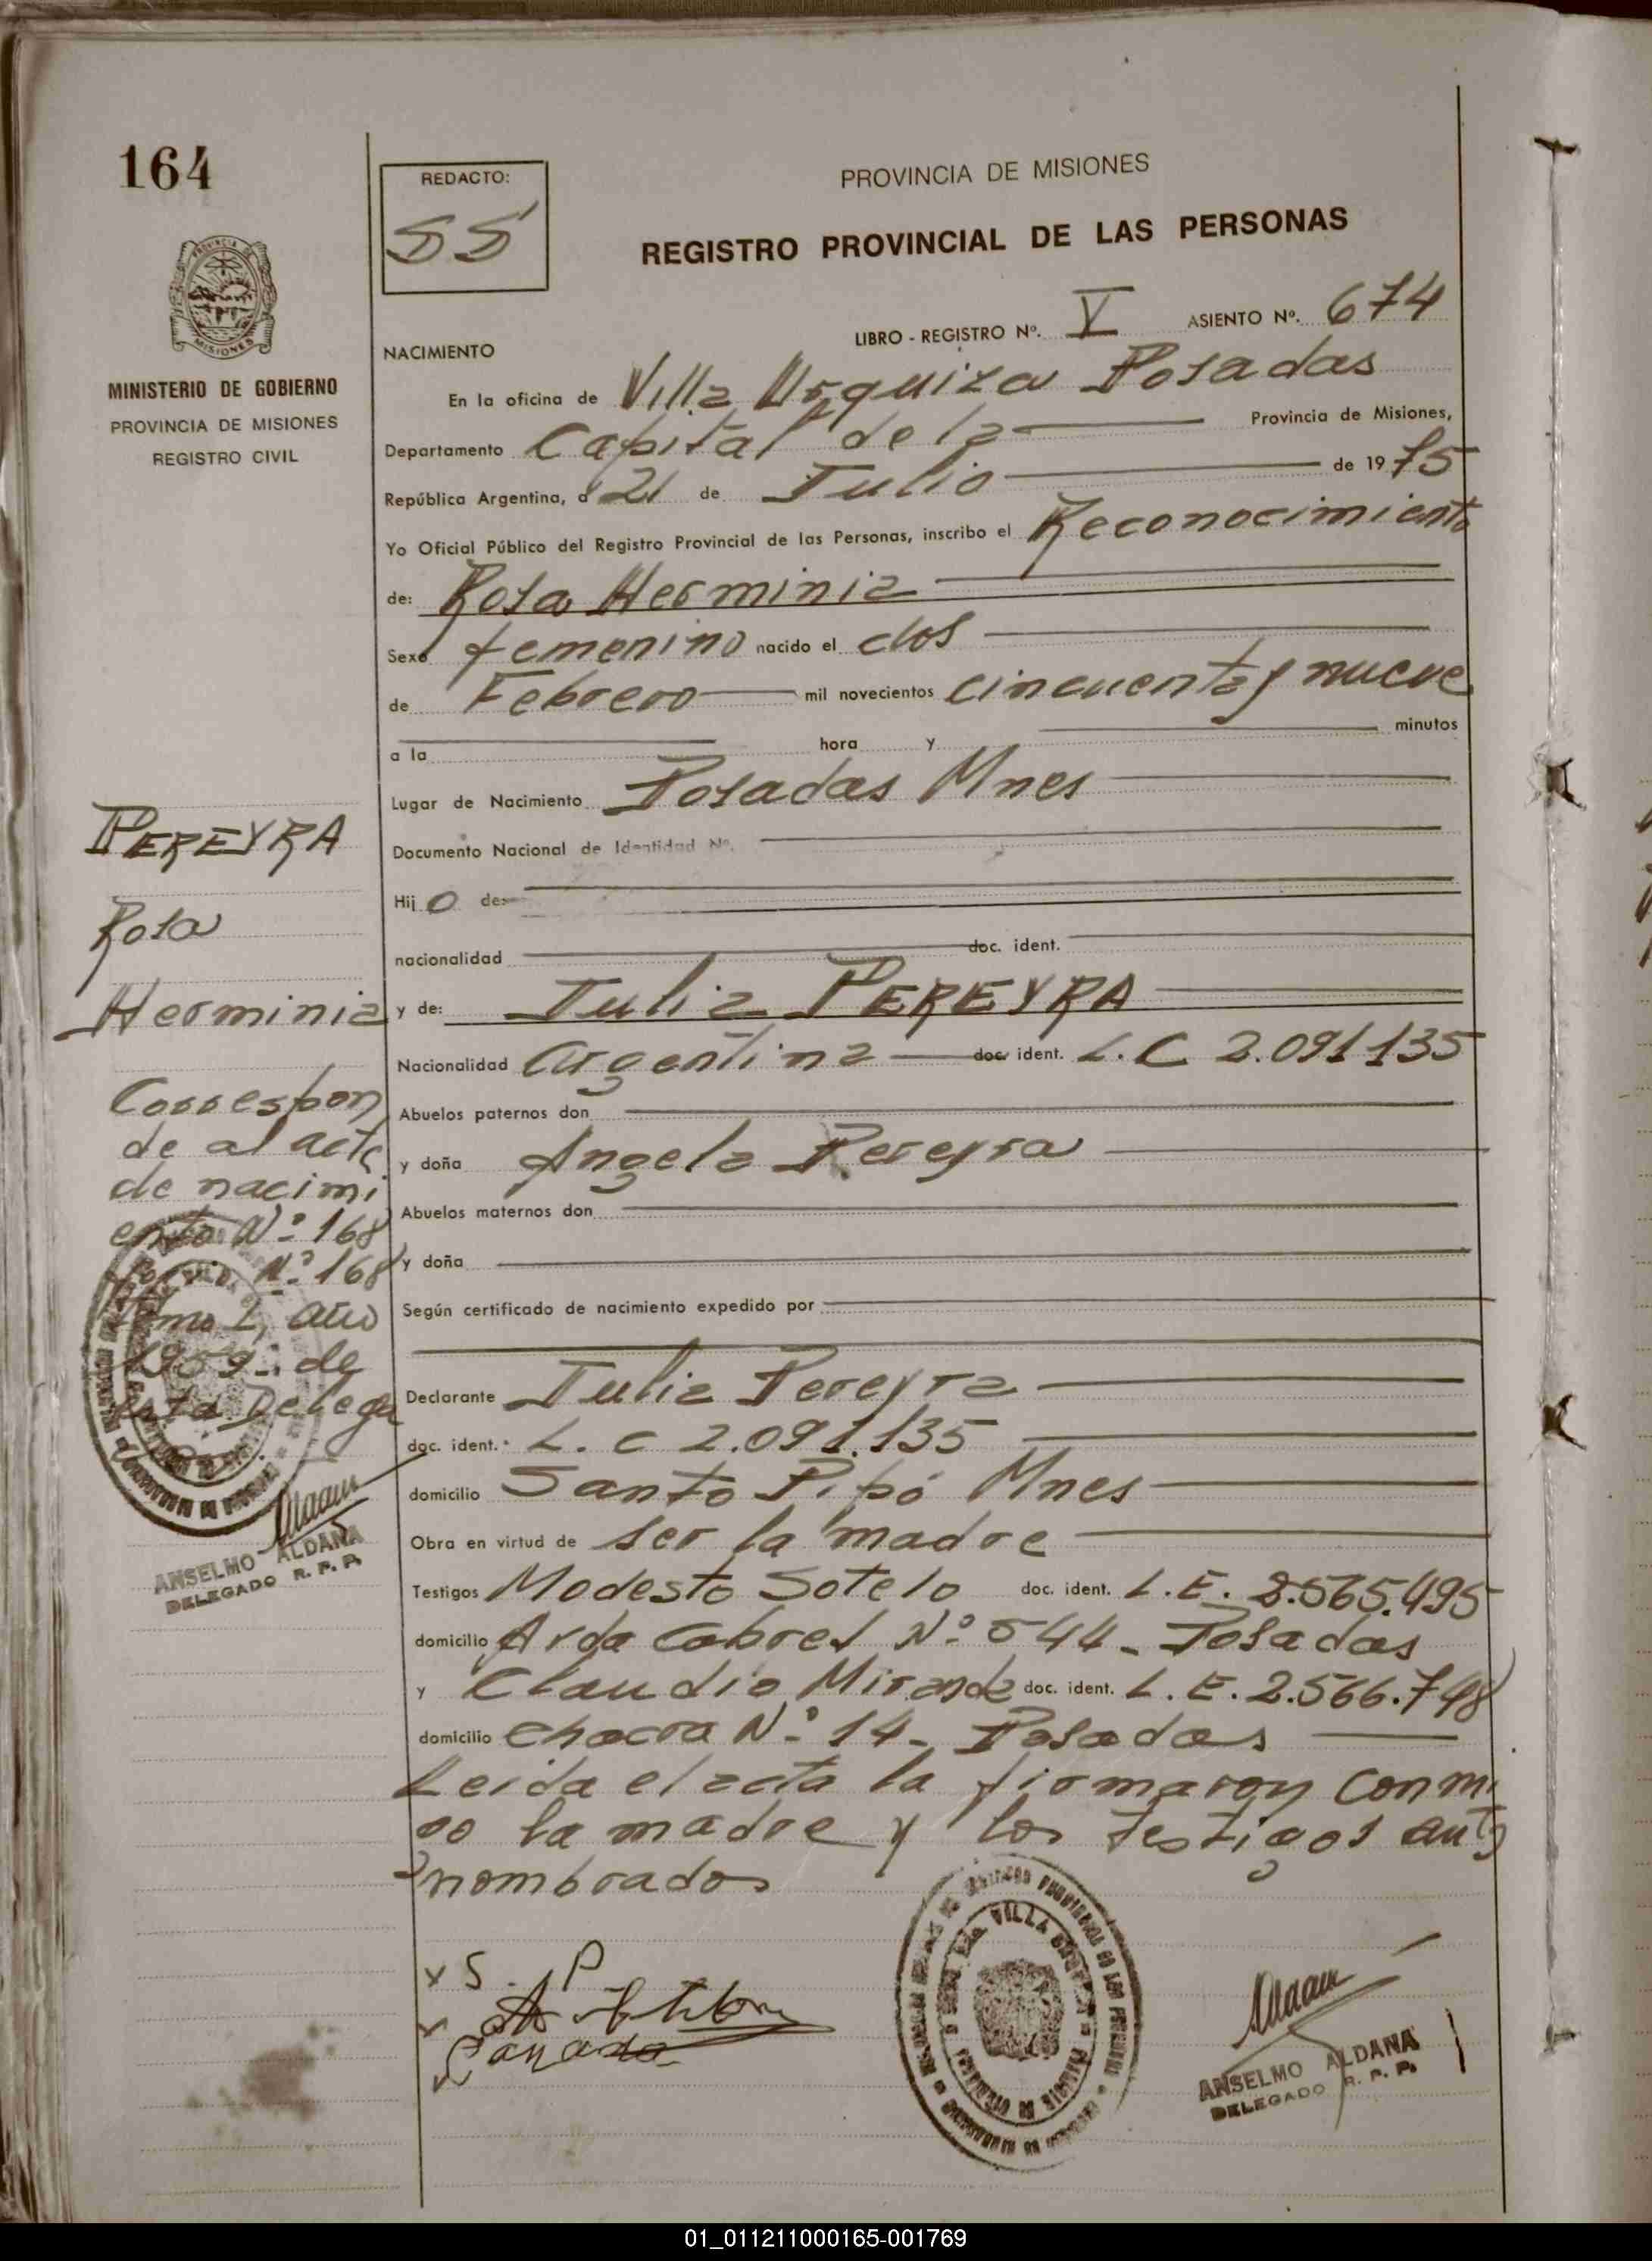 164
REDACTO:
SS
PROVINCIA DE MISIONES
REGISTRO PROVINCIAL DE LAS PERSONAS
LIBRO - REGISTRO Nº. V ASIENTO Nº. 674
MINISTERIO DE GOBIERNO
PROVINCIA DE MISIONES
REGISTRO CIVIL
NACIMIENTO
En la oficina de Villa Urquiza Posadas
Departamento Capital de la Provincia de Misiones,
República Argentina, a 21 de Julio de 1975
Yo Oficial Público del Registro Provincial de las Personas, inscribo el Reconocimiento
de: Rosa Herminia
Sexo femenino nacido el dos
de Febrero mil novecientos cincuenta y nueve
a la hora y minutos
Lugar de Nacimiento Posadas Mnes
Documento Nacional de Identidad Nº.
Hijo de:
nacionalidad doc. ident.
y de: Julia PEREYRA
Nacionalidad argentina doc. ident. L.C 2.091135
Abuelos paternos don
y doña Angela Pereyra
Abuelos maternos don
y doña
Según certificado de nacimiento expedido por
Declarante Julia Pereyra
doc. ident. L. C 2.091.135
domicilio Santo Pipó Mnes
Obra en virtud de ser la madre
Testigos Modesto Sotelo doc. ident. L.E. 2.565.495
domicilio Avda Cabred Nº 544 - Posadas
y Claudio Miranda doc. ident. L.E. 2.566.748
domicilio chacra Nº 14 - Posadas
Leida el acta la firmaron conmi
go la madre y los testigos antes
nombrados
PEREYRA
Rosa
Herminia
Correspon
de al acta
de nacimi
ento Nº 168
folio Nº 168
Tomo I, año
1959 - de
esta Delega
ANSELMO ALDANA
DELEGADO R. P. P.
x S. P
ANSELMO ALDANA
DELEGADO R. P. P.
01_011211000165-001769